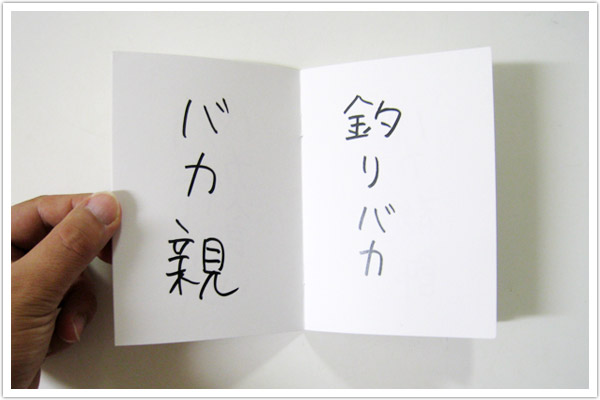 釣りバカ
バカ親